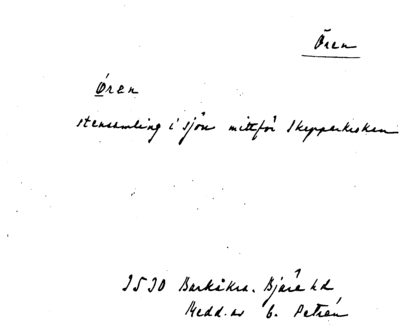 Ören
Ören
stensamling i sjön mittför Skepparkroken
1530 Barkåkra. Bjäre hd
Medd. av C. Petrén